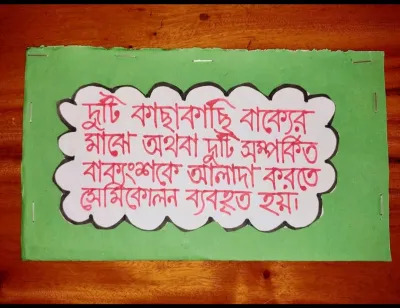 দুটি কাছাকাছি বাক্যের
মাঝে অথবা দুটি সম্পর্কিত
বাক্যংশকে আলাদা করতে
সেমিকোলন ব্যবহৃত হয়।